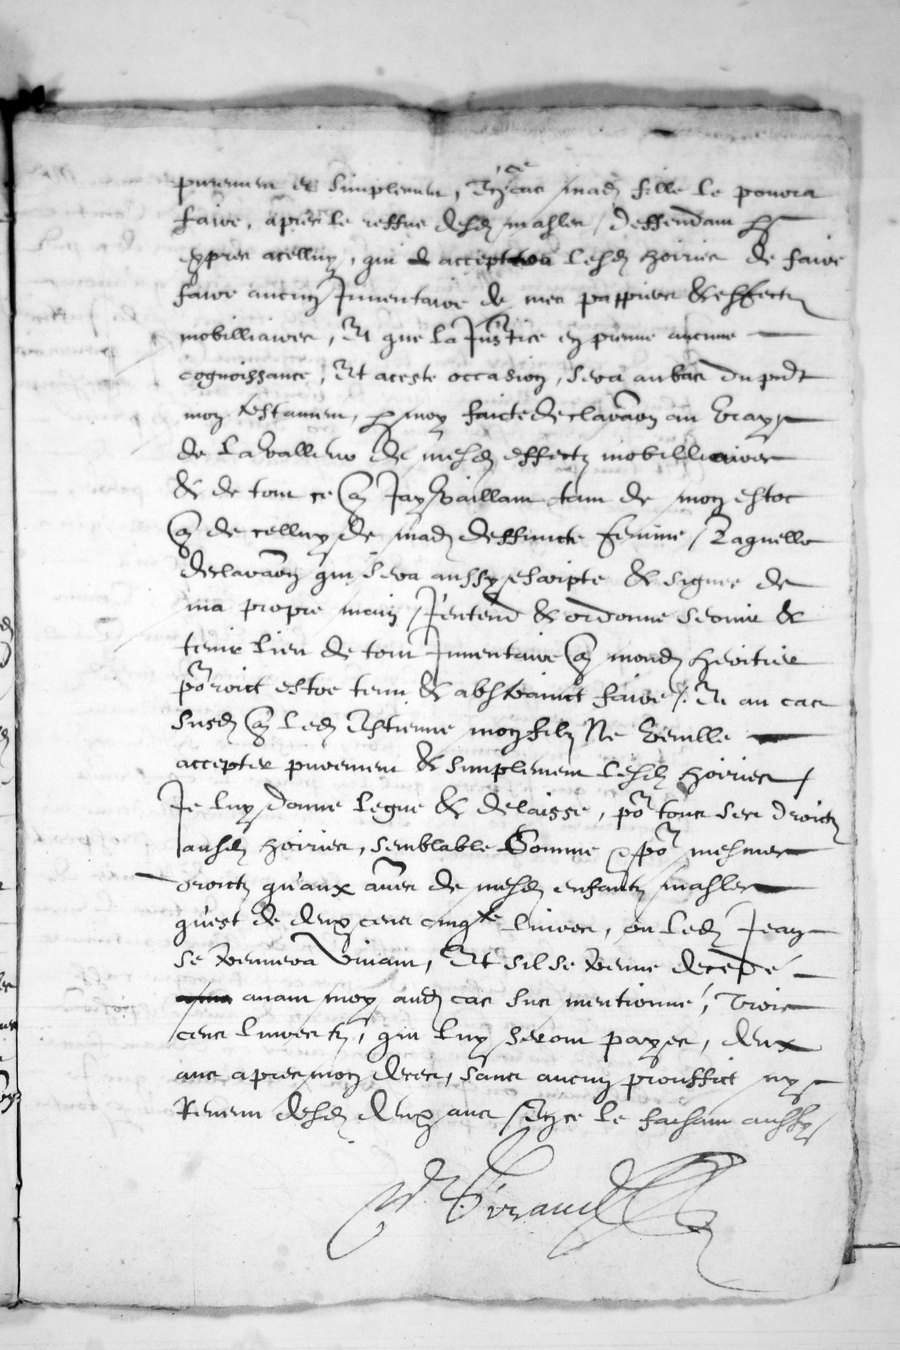 purement et simplement, Et en cas madᵉ fille le pouvra
faire, apres le reffus desdᶻ masles, deffendant par
expres a celluy, qui acceptera lesdᶻ hoiries de faire
faire aucung Inventaire de mes pappiers & effectz
mobilliaires, Et que la Justice en prenne aucune
cognoissance, Et a ceste occasion, sera au bas du pñt
mon testament, par moy faicte declaraõn au vray
de la valleur de mesdᶻ effectz mobilliaires
& de tout ce que Jay vaillant tant de mon estoc
que de celluy de madᵉ deffuncte femme, Laquelle
declaraõn qui sera aussy escripte & signee de
ma propre main, J'entend & ordonne servir &
tenir lieu de tout Inventaire que mondᵗ heritier
poʳroict estre tenu & abstrainct faire, Et au cas
susdᵗ que ledᵗ Estienne mon filz Ne veuille
accepter purement & simplement lesdᶻ hoiries,
Je luy donne legue & delaisse, poʳ tous ses droictz
ausdᶻ hoiries, semblable Somme & poʳ mesmes
droictz qu'aux auᵉˢ de mesdᶻ enfantz masles
qu'est de deux cens cinqᵗᵉ livres, ou ledᵗ Jean
se trouvera vivant, Et s'il se trouve decedé
avant moy audᵗ cas sus mentionné, Trois
cens livres tz, qui luy seront payés, deux
ans apres mon deces, sans aucun prouffict ny
Revenu desdᶻ deux ans, Et ce le faisant aussy
Giraud